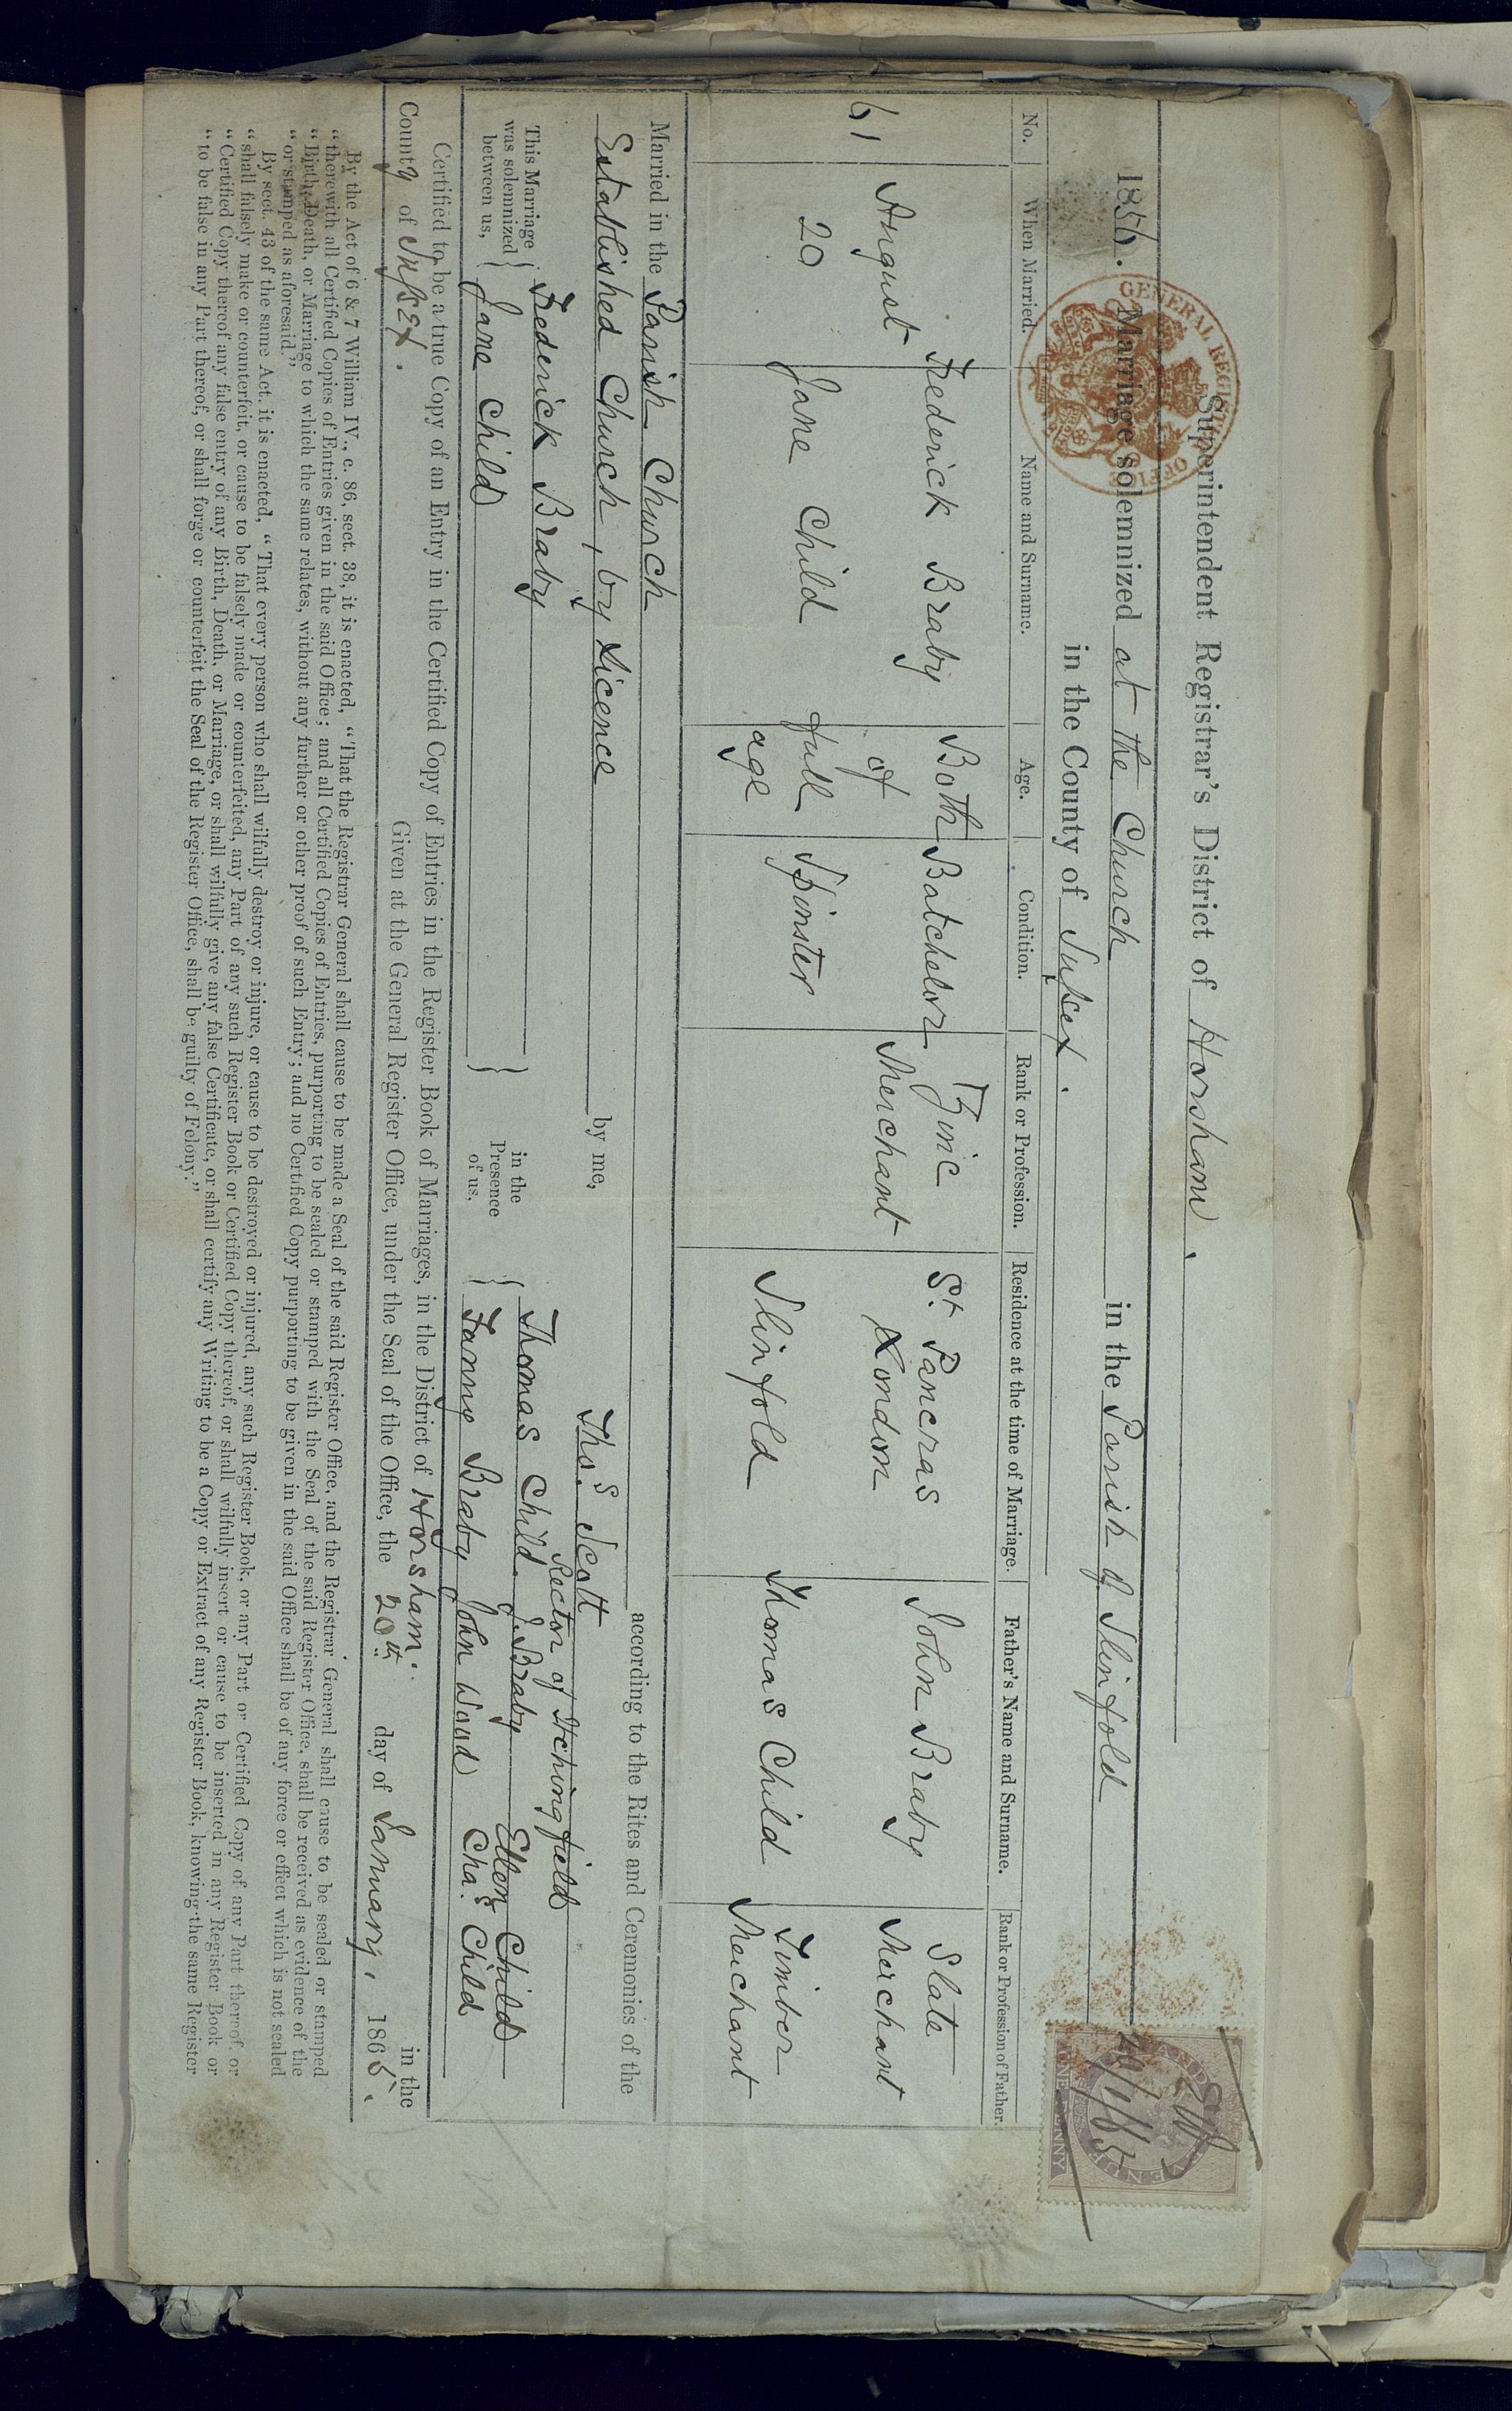 Superintendent Registrar's District of Horsham.
1856. Marriage solemnized at the Church in the Parish of Slinfold
in the County of Sussex.
No. When Married. Name and Surname. Age. Condition. Rank or Profession. Residence at the time of Marriage. Father's Name and Surname. Rank or Profession of Father.
Frederick Braby Both Batchelor Zinc St. Pancras John Braby Slate
61 August of Merchant London Merchant
20 Jane Child full Spinster Slinfold Thomas Child Timber
age Merchant
Married in the Parish Church according to the Rites and Ceremonies of the
Established Church, by Licence by me, Thos. Scott
Rector of Itchingfield
This Marriage was solemnized between us, Frederick Braby in the Presence of us, Thomas Child. J. Braby Ellen Child
Jane Child Fanny Braby John Chas. Child
Certified to be a true Copy of an Entry in the Certified Copy of Entries in the Register Book of Marriages, in the District of Horsham. in the
County of Sussex. Given at the General Register Office, under the Seal of the Office, the 20th day of January. 1865.
By the Act of 6 & 7 William IV., c. 86, sect. 38, it is enacted, “That the Registrar General shall cause to be made a Seal of the said Register Office, and the Registrar General shall cause to be sealed or stamped
“therewith all Certified Copies of Entries given in the said Office; and all Certified Copies of Entries, purporting to be sealed or stamped with the Seal of the said Register Office, shall be received as evidence of the
“Birth, Death, or Marriage to which the same relates, without any further or other proof of such Entry; and no Certified Copy purporting to be given in the said Office shall be of any force or effect which is not sealed
“or stamped as aforesaid.”
By sect. 43 of the same Act, it is enacted, “That every person who shall wilfully destroy or injure, or cause to be destroyed or injured, any such Register Book, or any Part or Certified Copy of any Part thereof, or
“shall falsely make or counterfeit, or cause to be falsely made or counterfeited, any Part of any such Register Book or Certified Copy thereof, or shall wilfully insert or cause to be inserted in any Register Book or
“Certified Copy thereof any false entry of any Birth, Death, or Marriage, or shall wilfully give any false Certificate, or shall certify any Writing to be a Copy or Extract of any Register Book, knowing the same Register
“to be false in any Part thereof, or shall forge or counterfeit the Seal of the Register Office, shall be guilty of Felony.”
GENERAL REGISTER OFFICE
20/1/65